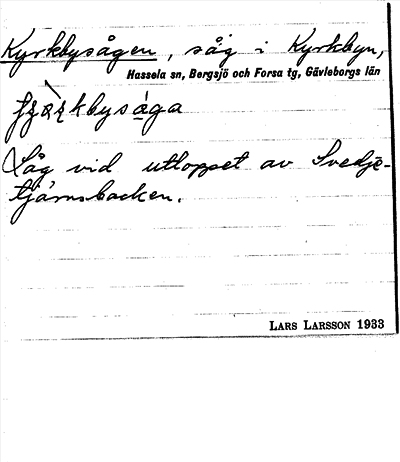 Kyrkbysågen, såg i Kyrkbyn,
Hassela sn, Bergsjö och Forsa tg, Gävleborgs län
Såg vid utloppet av Svedje-
tjärnsbacken.
LARS LARSSON 1933